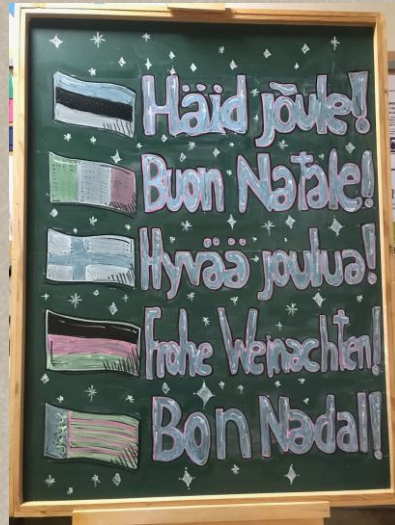 Häid jõule!
Buon Natale!
Hyvää joulua!
Frohe Weinachten!
Bon Nadal!